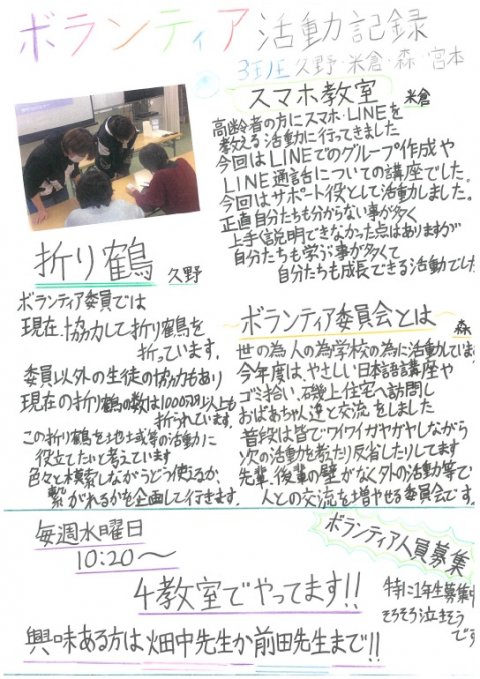 ボランティア活動記録
3班 久野・米倉・森・宮本
スマホ教室 米倉
高齢者の方にスマホ・LINEを
教える活動に行ってきました
今回はLINEでのグループ作成や
LINE通話についての講座でした。
今回はサポート役として活動しました。
正直自分たちも分からない事が多く
上手く説明できなかった点はありますが
自分たちも学ぶ事が多くて
自分たちも成長できる活動でした
折り鶴 久野
ボランティア委員では
現在、協力して折り鶴を
折っています。
委員以外の生徒の協力もあり
現在の折り鶴の数は1000羽以上も
折られています。
この折り鶴を地域等の活動に
役立てたいと考えています
色々と模索しながらどう使えるか、
繋がれるかを企画して行きます。
ボランティア委員会とは 森
世の為人の為学校の為に活動しています
今年度は、やさしい日本語講座や
ゴミ拾い、磯上住宅へ訪問し
おばあちゃん達と交流をしました
普段は皆でワイワイガヤガヤしながら
次の活動を考えたり反省したりしてます
先輩、後輩の壁がなく外の活動等で
人との交流を増やせる委員会です。
毎週水曜日
10:20〜
4教室でやってます!!
興味ある方は畑中先生か前田先生まで!!
ボランティア人員募集
特に1年生募集中
そろそろ泣きそう
です